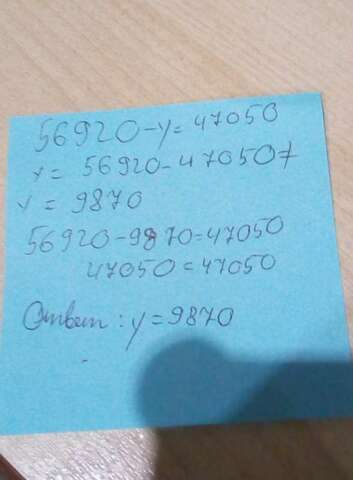 56920-y=47050
y=56920-47050
y=9870
56920-9870=47050
47050=47050
Ответ: y=9870